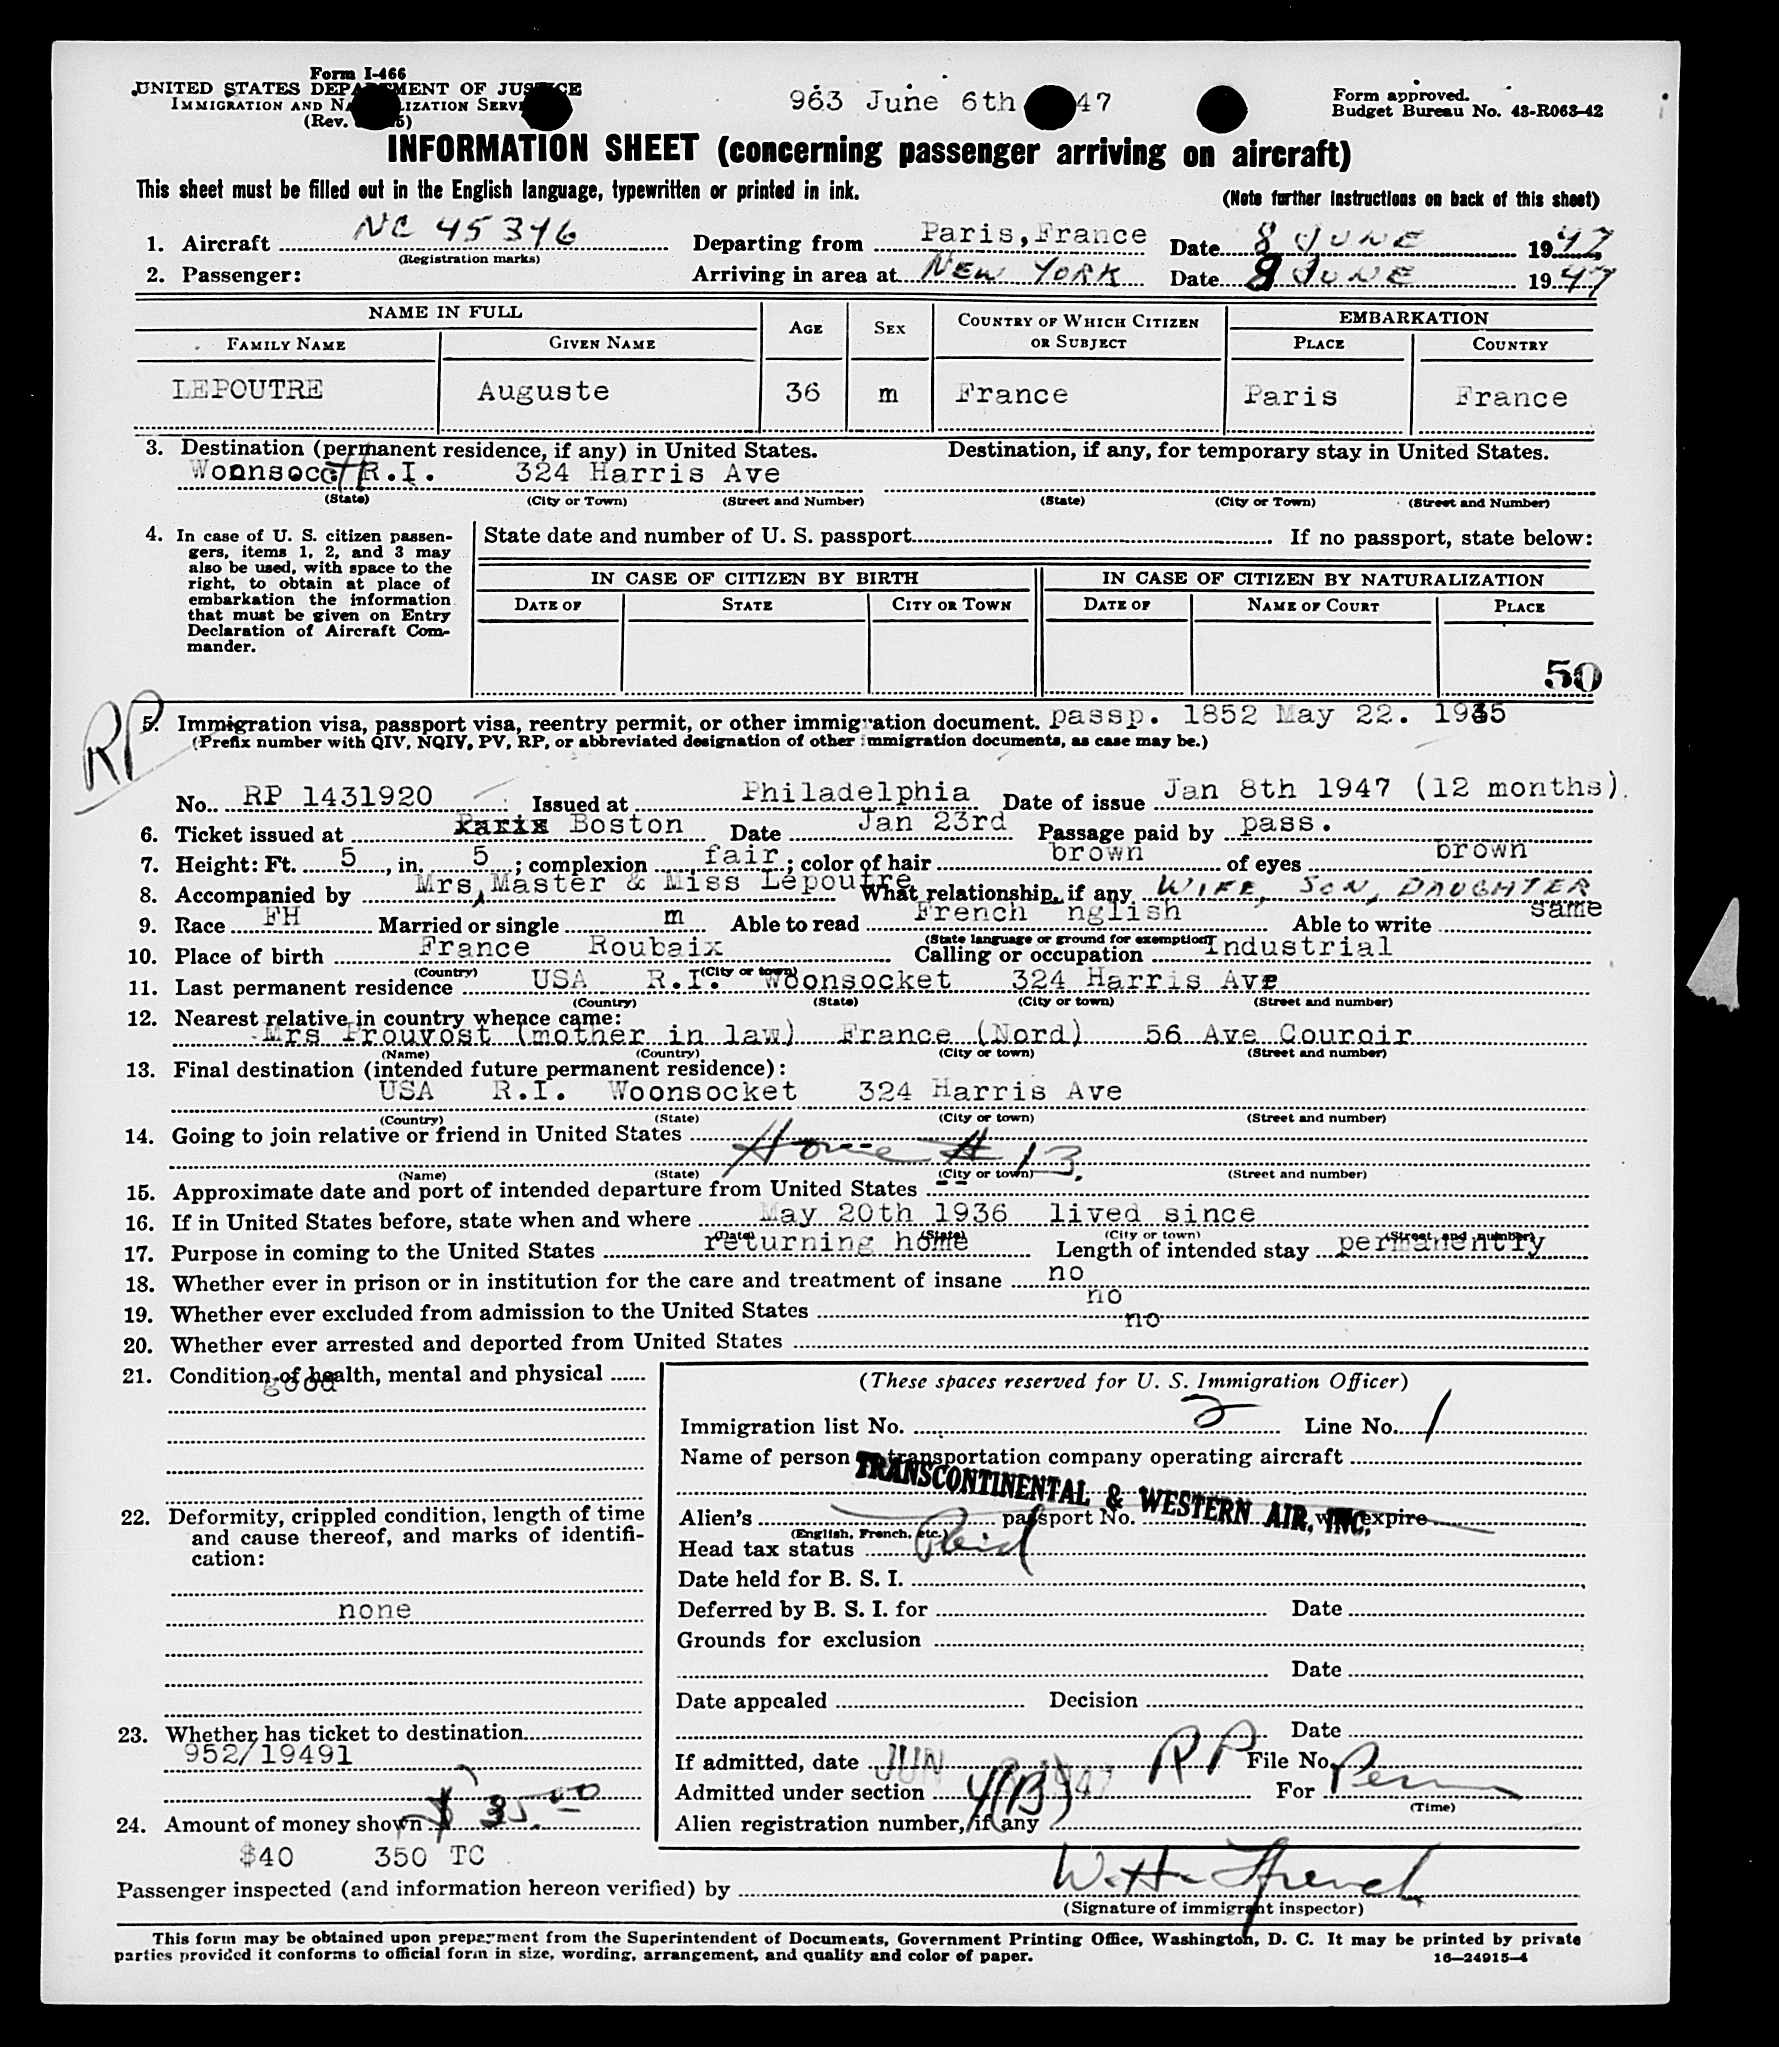 Form I-466
UNITED STATES DEPARTMENT OF JUSTICE
IMMIGRATION AND NATURALIZATION SERVICE
(Rev.
963 June 6th 47
Form approved.
Budget Bureau No. 43-R063-42
INFORMATION SHEET (concerning passenger arriving on aircraft)
This sheet must be filled out in the English language, typewritten or printed in ink.
(Note further instructions on back of this sheet)
1. Aircraft NC 45346 Departing from Paris, France Date 8 JUNE 1947
(Registration marks)
2. Passenger: Arriving in area at NEW YORK Date 8 JUNE 1947
NAME IN FULL AGE SEX COUNTRY OF WHICH CITIZEN OR SUBJECT EMBARKATION
FAMILY NAME GIVEN NAME PLACE COUNTRY
LEPOUTRE Auguste 36 m France Paris France
3. Destination (permanent residence, if any) in United States. Destination, if any, for temporary stay in United States.
Woonsocet R.I. 324 Harris Ave
(State) (City or Town) (Street and Number) (State) (City or Town) (Street and Number)
4. In case of U. S. citizen passen-
gers, items 1, 2, and 3 may
also be used, with space to the
right, to obtain at place of
embarkation the information
that must be given on Entry
Declaration of Aircraft Com-
mander.
State date and number of U. S. passport If no passport, state below:
IN CASE OF CITIZEN BY BIRTH IN CASE OF CITIZEN BY NATURALIZATION
DATE OF STATE CITY OR TOWN DATE OF NAME OF COURT PLACE
50
RP
5. Immigration visa, passport visa, reentry permit, or other immigration document. passp. 1852 May 22. 1945
(Prefix number with QIV, NQIV, PV, RP, or abbreviated designation of other immigration documents, as case may be.)
No. RP 1431920 Issued at Philadelphia Date of issue Jan 8th 1947 (12 months).
6. Ticket issued at Boston Date Jan 23rd Passage paid by pass.
7. Height: Ft. 5, in. 5; complexion fair; color of hair brown of eyes brown
8. Accompanied by Mrs, Master & Miss Lepoutre What relationship, if any WIFE, SON, DAUGHTER
9. Race FH Married or single m Able to read French nglish Able to write same
(State language or ground for exemption)
10. Place of birth France Roubaix Calling or occupation Industrial
(Country) (City or town)
11. Last permanent residence USA R.I. Woonsocket 324 Harris Ave
(Country) (State) (City or town) (Street and number)
12. Nearest relative in country whence came:
Mrs Prouvost (mother in law) France (Nord) 56 Ave Couroir
(Name) (Country) (City or town) (Street and number)
13. Final destination (intended future permanent residence):
USA R.I. Woonsocket 324 Harris Ave
(Country) (State) (City or town) (Street and number)
14. Going to join relative or friend in United States
Home # 13.
(Name) (State) (City or town) (Street and number)
15. Approximate date and port of intended departure from United States
16. If in United States before, state when and where May 20th 1936 lived since
(Date) (State) (City or town) (Street and number)
17. Purpose in coming to the United States returning home Length of intended stay permanently
18. Whether ever in prison or in institution for the care and treatment of insane no
19. Whether ever excluded from admission to the United States no
20. Whether ever arrested and deported from United States no
21. Condition of health, mental and physical
good
22. Deformity, crippled condition, length of time
and cause thereof, and marks of identifi-
cation:
none
23. Whether has ticket to destination
952/19491
24. Amount of money shown $ 35.00
$40 350 TC
(These spaces reserved for U. S. Immigration Officer)
Immigration list No. 2 Line No. 1
Name of person or transportation company operating aircraft
TRANSCONTINENTAL & WESTERN AIR, INC.
Alien's passport No. will expire
(English, French, etc.)
Head tax status Paid
Date held for B. S. I.
Deferred by B. S. I. for Date
Grounds for exclusion
Date
Date appealed Decision
Date
If admitted, date JUN 1947 RP File No.
Admitted under section 4(B) For Perm
(Time)
Alien registration number, if any
Passenger inspected (and information hereon verified) by W. H. French
(Signature of immigrant inspector)
This form may be obtained upon prepayment from the Superintendent of Documents, Government Printing Office, Washington, D. C. It may be printed by private
parties provided it conforms to official form in size, wording, arrangement, and quality and color of paper.
16—24915-4